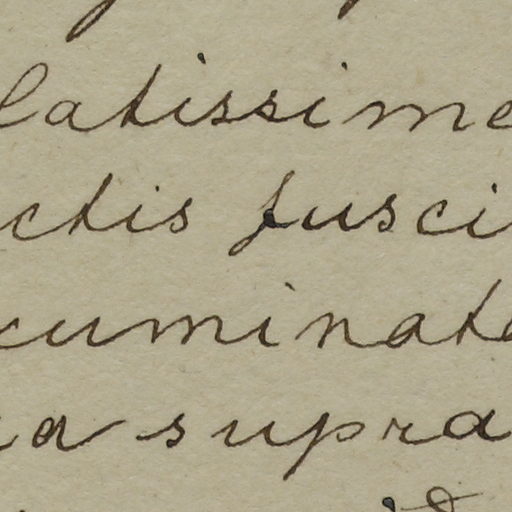 latissime
ctis fusci
cuminata
a supra